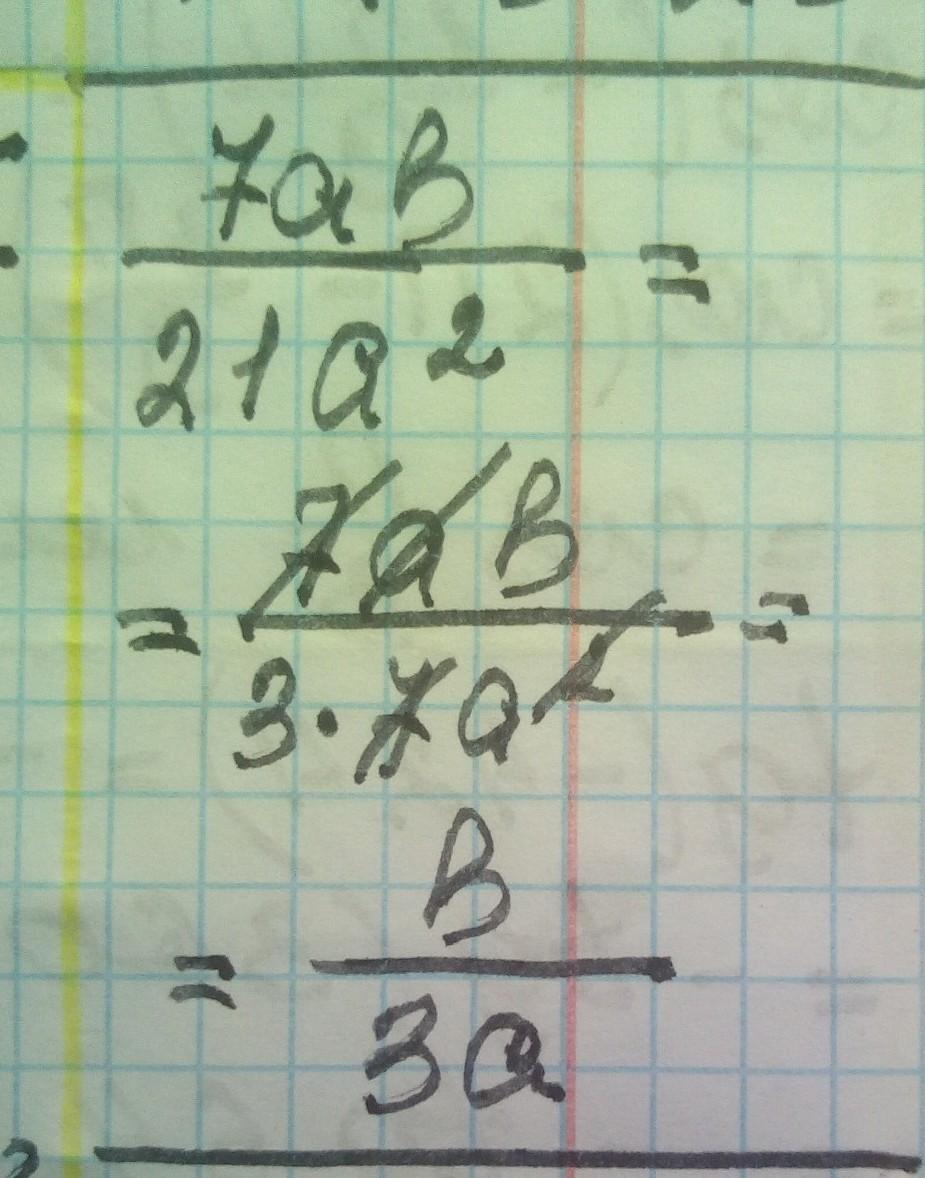 7ab
21a² =
= 7ab
3·7a² =
= b
3a